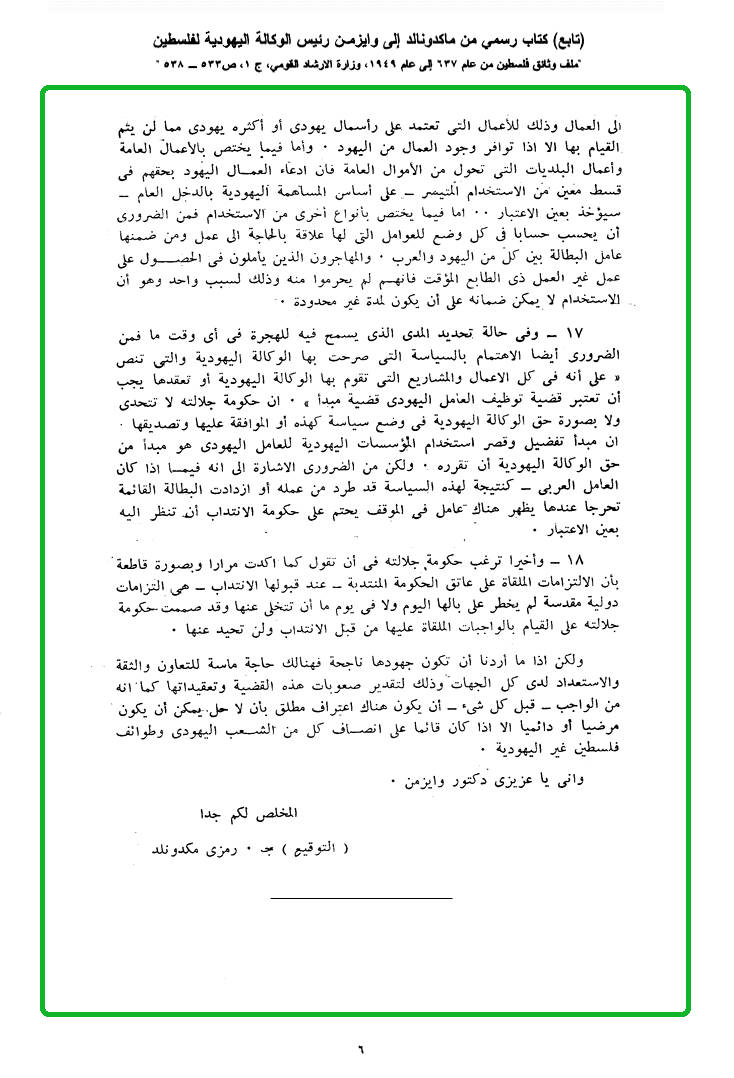 (تابع) كتاب رسمي من ماكدونالد إلى وايزمـن رئيس الوكالة اليهودية لفلسطين
"ملف وثائق فلسطين من عام ٦٣٧ إلى عام ١٩٤٩، وزارة الارشاد القومي، ج ١، ص٥٣٣ – ٥٣٨ "
الى العمال وذلك للأعمال التى تعتمد على رأسمال يهودى أو أكثره يهودى مما لن يتم
القيام بها الا اذا توافر وجود العمال من اليهود ٠ وأما فيما يختص بالأعمال العامة
وأعمال البلديات التى تحول من الأموال العامة فان ادعاء العمـال اليهود بحقهم فى
قسط معين من الاستخدام المتيسر – على أساس المساهمة اليهودية بالدخل العام –
سيؤخذ بعين الاعتبار ٠٠ اما فيما يختص بأنواع أخرى من الاستخدام فمن الضرورى
أن يحسب حسابا فى كل وضع للعوامل التى لها علاقة بالحاجة الى عمل ومن ضمنها
عامل البطالة بين كل من اليهود والعرب ٠ والمهاجرون الذين يأملون فى الحصـول على
عمل غير العمل ذى الطابع المؤقت فانهـم لم يحرموا منه وذلك لسبب واحد وهو أن
الاستخدام لا يمكن ضمانه على أن يكون لمدة غير محدودة ٠
١٧ – وفى حالة تحديد المدى الذى يسمح فيه للهجرة فى أى وقت ما فمن
الضرورى أيضا الاهتمام بالسياسة التى صرحت بها الوكالة اليهودية والتى تنص
« على أنه فى كل الاعمال والمشاريع التى تقوم بها الوكالة اليهودية أو تعقدها يجب
أن تعتبر قضية توظيف العامل اليهودى قضية مبدأ » ٠ ان حكومة جلالته لا تتحدى
ولا بصورة حق الوكالة اليهودية فى وضع سياسة كهذه أو الموافقة عليها وتصديقها ٠
ان مبدأ تفضيل وقصر استخدام المؤسسات اليهودية للعامل اليهودى هو مبدأ من
حق الوكالة اليهودية أن تقرره ٠ ولكن من الضرورى الاشارة الى انه فيمـا اذا كان
العامل العربى – كنتيجة لهذه السياسة قد طرد من عمله أو ازدادت البطالة القائمة
تحرجا عندها يظهر هناك عامل فى الموقف يحتم على حكومة الانتداب أن تنظر اليه
بعين الاعتبار ٠
١٨ – وأخيرا ترغب حكومة جلالته فى أن تقول كما اكدت مرارا وبصورة قاطعة
بأن الالتزامات الملقاة على عاتق الحكومة المنتدبة – عند قبولها الانتداب – هى التزامات
دولية مقدسة لم يخطر على بالها اليوم ولا فى يوم ما أن تتخلى عنها وقد صممت حكومة
جلالته على القيام بالواجبات الملقاة عليها من قبل الانتداب ولن تحيد عنها ٠
ولكن اذا ما أردنا أن تكون جهودها ناجحة فهنالك حاجة ماسة للتعاون والثقة
والاستعداد لدى كل الجهات وذلك لتقدير صعوبات هذه القضية وتعقيداتها كما انه
من الواجب – قبل كل شىء – أن يكون هناك اعتراف مطلق بأن لا حل يمكن أن يكون
مرضيا أو دائميا الا اذا كان قائما على انصـاف كل من الشـعب اليهودى وطوائف
فلسطين غير اليهودية ٠
وانى يا عزيزى دكتور وايزمن ٠
المخلص لكم جدا
( التوقيع ) جـ ٠ رمزى مكدونلد
٦